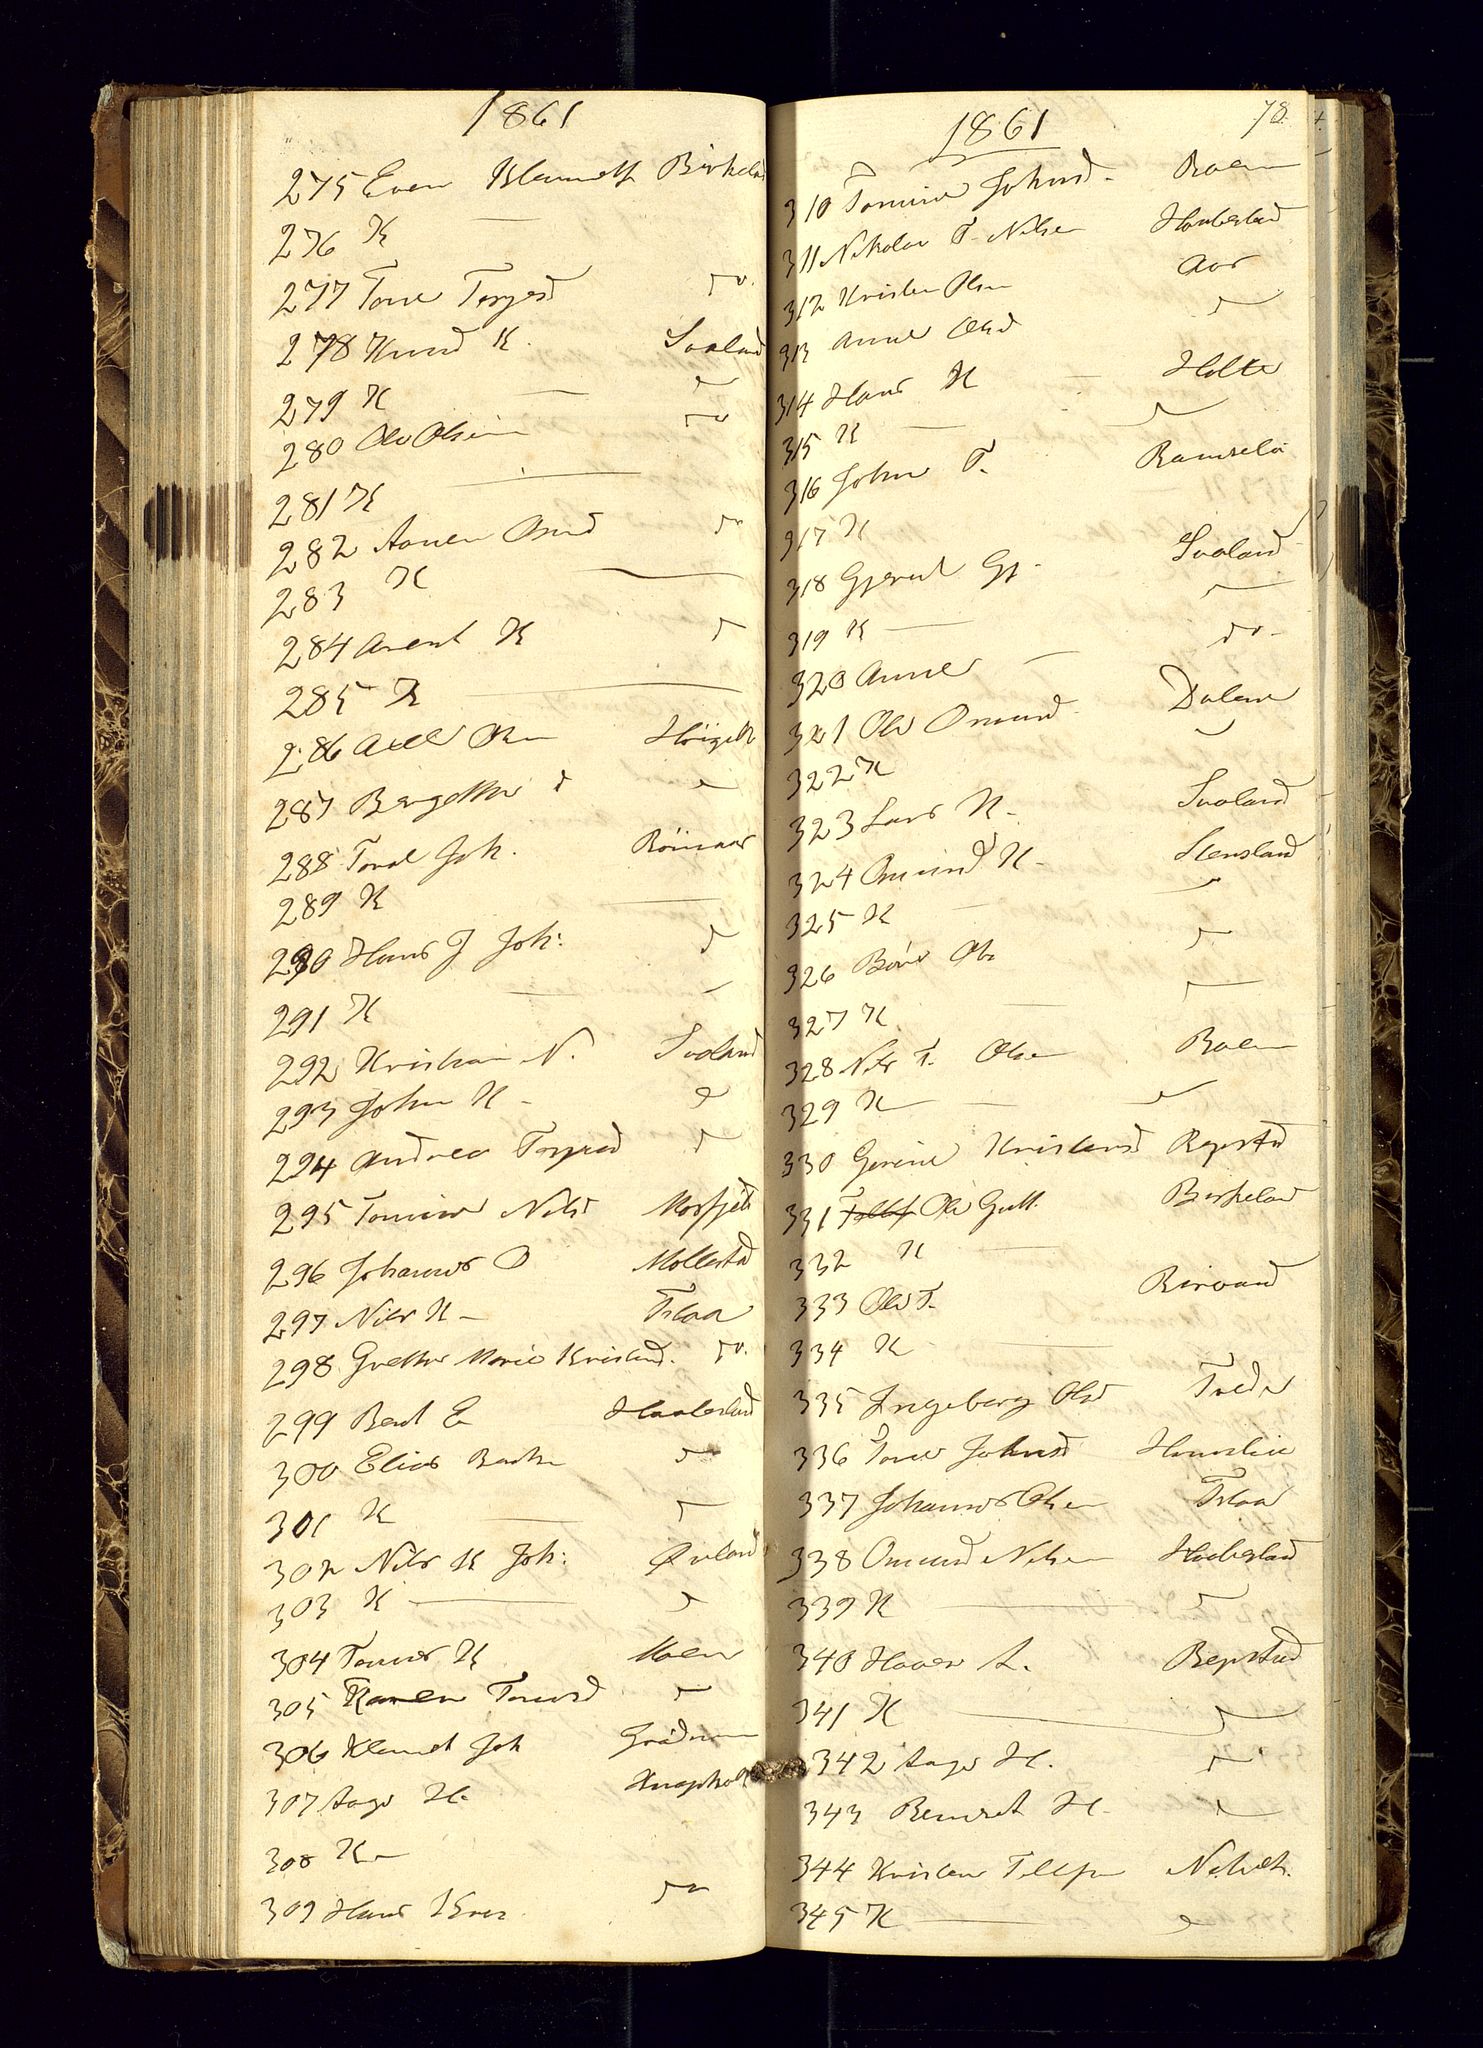 1861
275 Even Klemetss Birkeland
276 K —
277 Tone Torgesd do.
278 Knud K. Svaland
279 K — do
280 Ole Olsen do
281 K —
282 Aanen Osmd do
283 K —
284 Arent K do
285 K —
286 Axel Olsen
287 Bergethe
288 Torel Joh. Röinaas
289 K —
290 Hans J Joh: do
291 K — —
292 Kristian N. Svaland
293 John K -
294 Andrea Torgesd do
295 Tomine Nilsd Mosfjeld
296 Johannes O Mollestad
297 Nils K - Tveaa
298 Grethe Marie Kristensd. do.
299 Bent E Haabesland
300 Elias Bentsen do
301 K — do
302 Nils K Joh: Øvland
303 K —
304 Tomes K Moen
305 Karen Tomesd
306 Klemet Joh
307 Aage H. Knapholt
308 K -
309 Hans Iver. do
1861
78
310 Tomine Johnsd - Roen
311 Nikolai T. Nilsen Haabesland
312 Kristen Olsen Aas
313 Anne Olsd do
314 Hans K — Holte
315 K — do
316 John T.
317 K
318 Gjeruld Gj - Svaland
319 K —
320 Anne — do -
321 Ole Omund Dalene
322 K
323 Lars K - Svaland
324 Omund K - Stensland
325 K —
326 Börs Ols do
327 K —
328 Nils T. Olsen Roen
329 K —
330 Gurine Kristensd Repstad
331 Ole Gutt. Birkeland
332 K —
333 Ole T. Risvand
334 K —
335 Ingeborg Olsd Tvede
336 Tone Johnsd
337 Johannes Olsen Tveaa
338 Omund Nilsen Haabesland
339 K — do
340 Haaver A. Repstad
341 K — do
342 Aage H. do
343 Berntet H. do
344 Kristen Tellefsen
345 K —